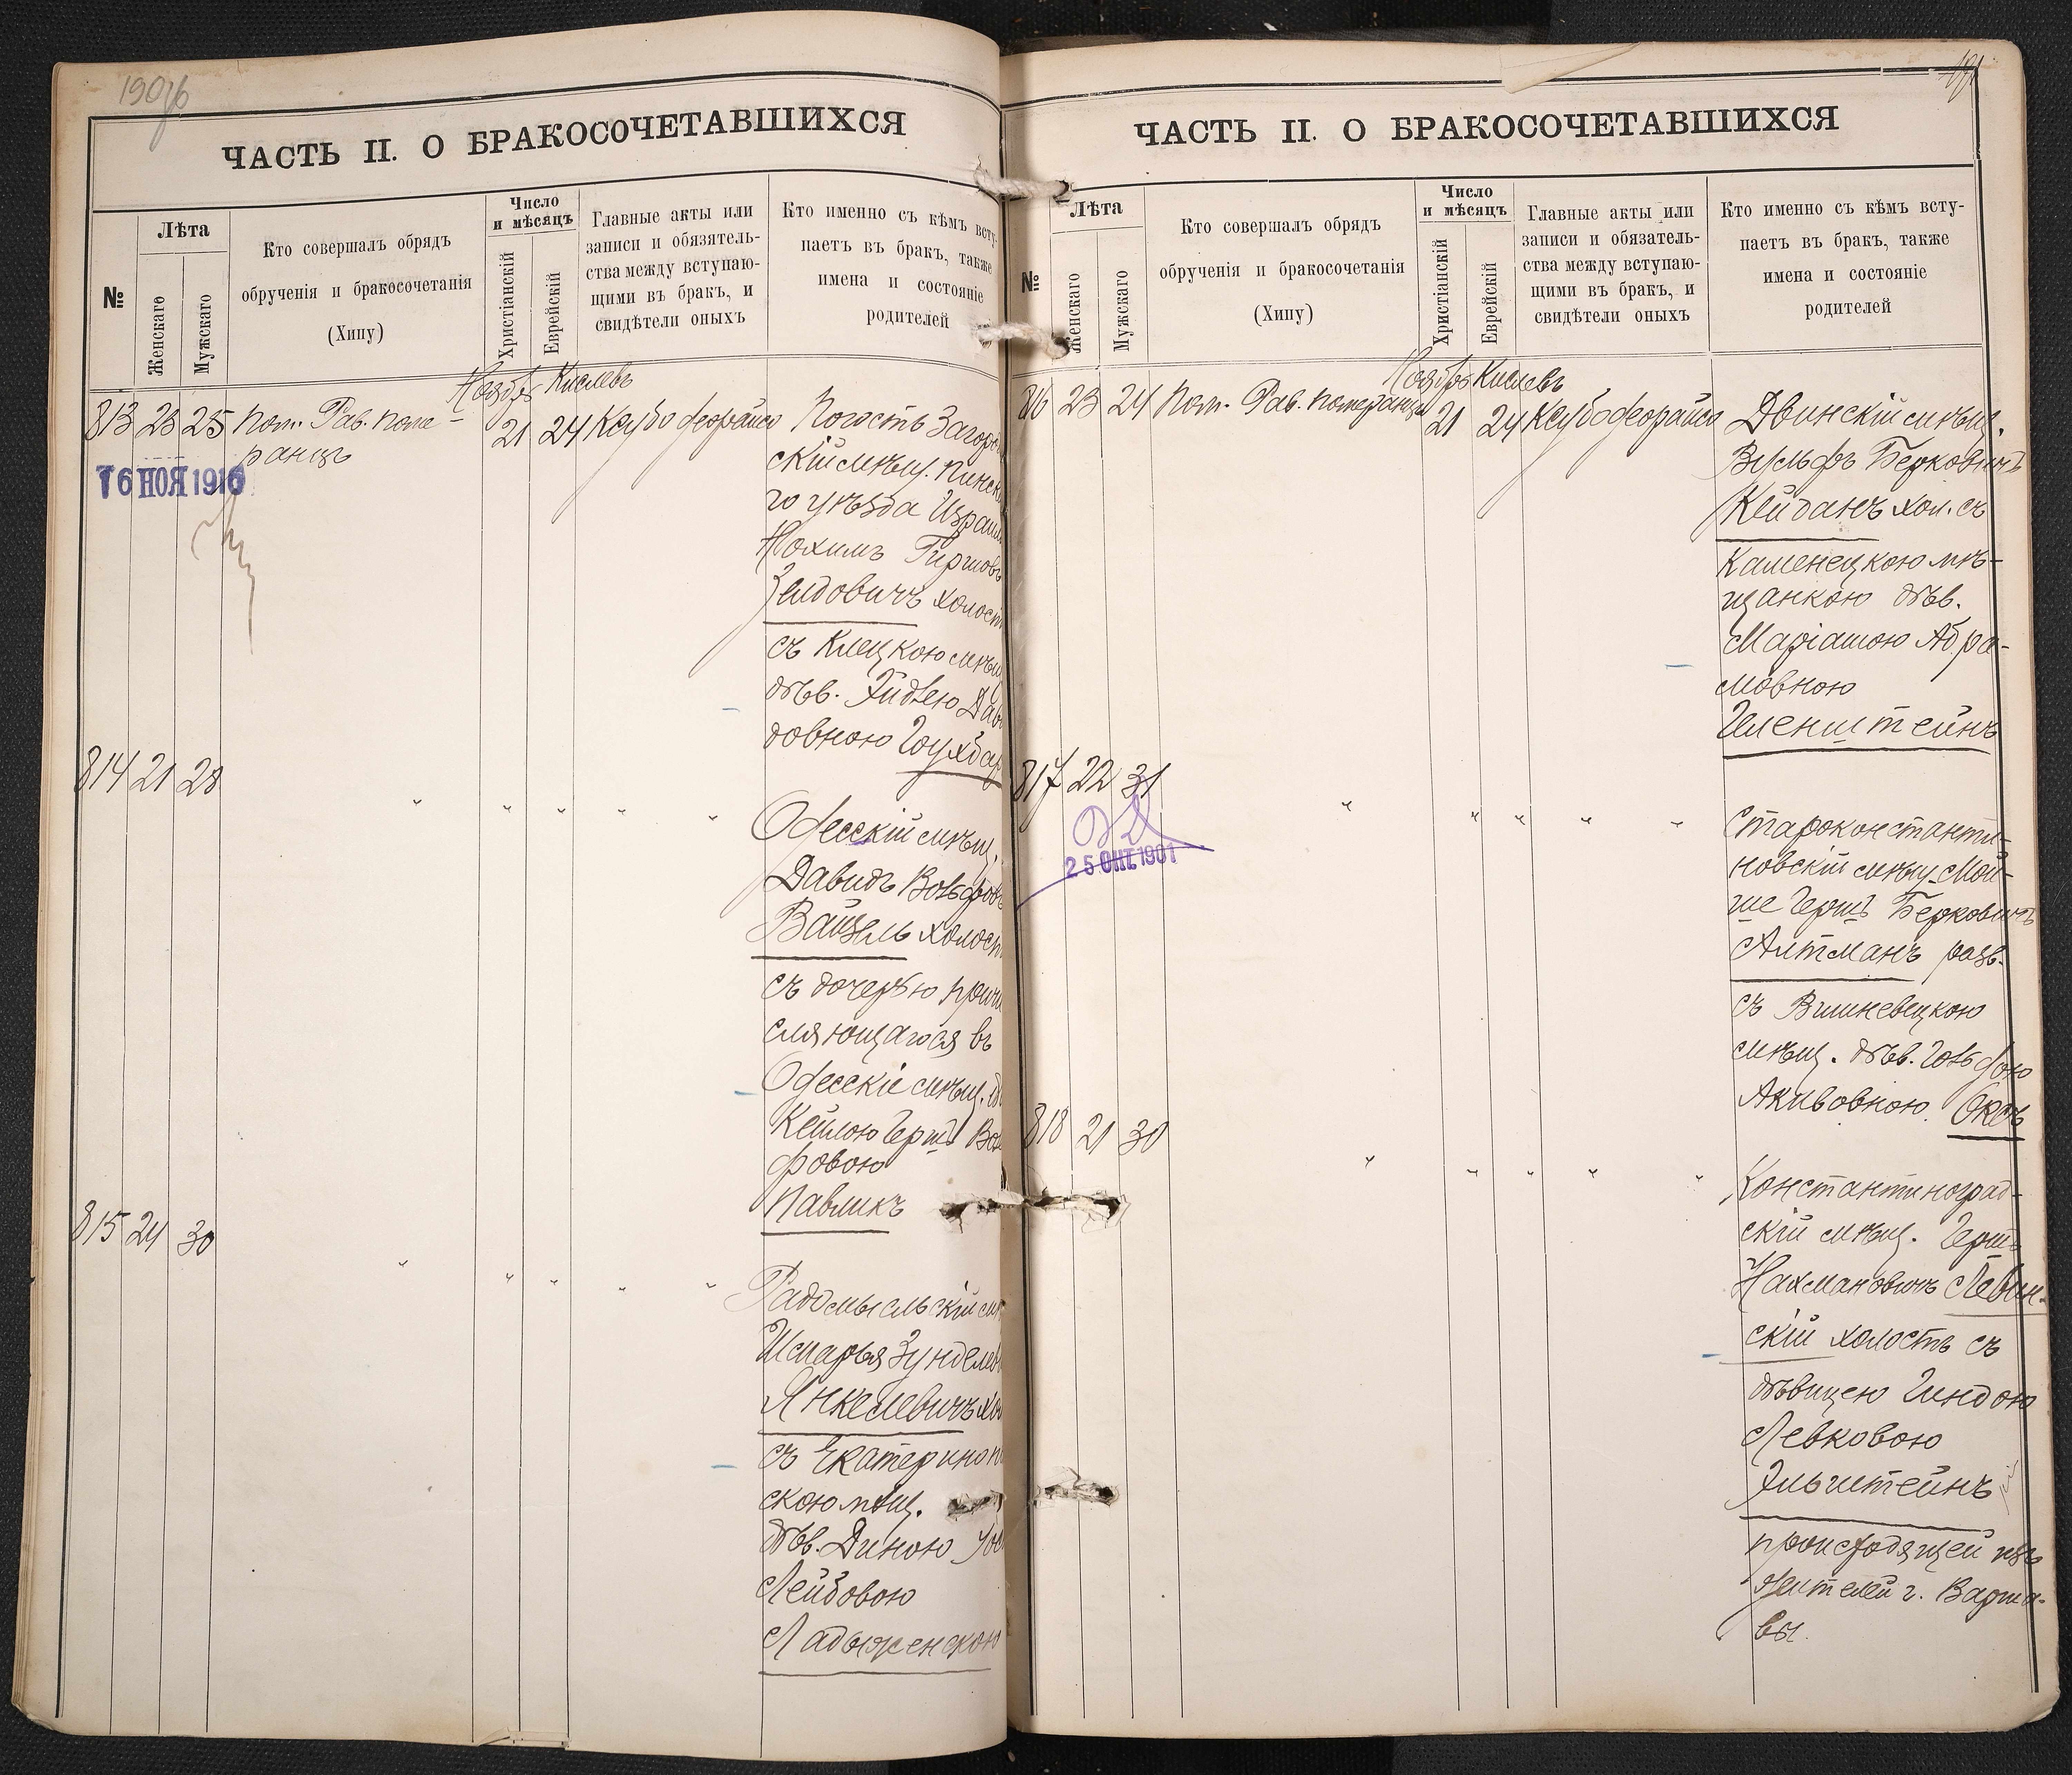 190
ЧАСТЬ II. О БРАКОСОЧЕТАВШИХСЯ
№
Лѣта
Женскаго
Мужскаго
Кто совершалъ обрядъ
обрученія и бракосочетанія
(Хипу)
Число
и мѣсяцъ
Христіанскій
Еврейскій
Главные акты или
записи и обязатель-
ства между вступаю-
щими въ бракъ, и
свидѣтели оныхъ
Кто именно съ кѣмъ всту-
паетъ въ бракъ, также
имена и состояніе
родителей
Ноябрь Кислевъ
813 23 25 Пом. Рав. Поме-
ранцъ
21 24 Ксубо
16 НОЯ 1916
Погостъ Загород
скій мѣщ. Пинска
го уѣзда Израиль
Нохимъ Гиршов
Зеидовичъ холост
съ Клецкою мѣщ
дѣв. Эйдлею Дав
довною
814 21 28
" " " " "
Одесскій мѣщ.
Давидъ Вольфов
Вайцель холост
съ дочерью причи
сляющагося въ
Одесскіе мѣщ.
Кейлою Герш Воль
фовою
Павликъ
815 24 30
" " " " "
Радомысльскій мѣ
Шмарья Зунделев
Янкелевичъ хо
съ Екатеринопо
скою мѣщ.
дѣв. Диною
Лейбовою
Ладыженскою
ЧАСТЬ II. О БРАКОСОЧЕТАВШИХСЯ
№
Лѣта
Женскаго
Мужскаго
Кто совершалъ обрядъ
обрученія и бракосочетанія
(Хипу)
Число
и мѣсяцъ
Христіанскій
Еврейскій
Главные акты или
записи и обязатель-
ства между вступаю-
щими въ бракъ, и
свидѣтели оныхъ
Кто именно съ кѣмъ всту-
паетъ въ бракъ, также
имена и состояніе
родителей
Ноябрь Кислевъ
816 23 24 Пом. Рав. Померанцъ 21 24 Ксубо
Двинскій мѣщ.
Вульфъ Берковичъ
Кейданъ хол. съ
Каменецкою мѣ-
щанкою дѣв.
Маріашою Абра-
мовною
Гиленштейнъ
817 22 31
" " " " "
25 ОКТ. 1901
Староконстанти-
новскій мѣщ. Мой-
ше Гершъ Берковичъ
Алтманъ разв.
съ Вишневецкою
мѣщ. дѣв. Гольдою
Акивовною Оксъ
818 21 30
" " " " "
Константиноград-
скій мѣщ. Гершъ
Нахмановичъ Левин-
скій холостъ съ
дѣвицею Гиндою
Левковою
Эльштейнъ
происходящей изъ
жителей г. Варша-
вы.